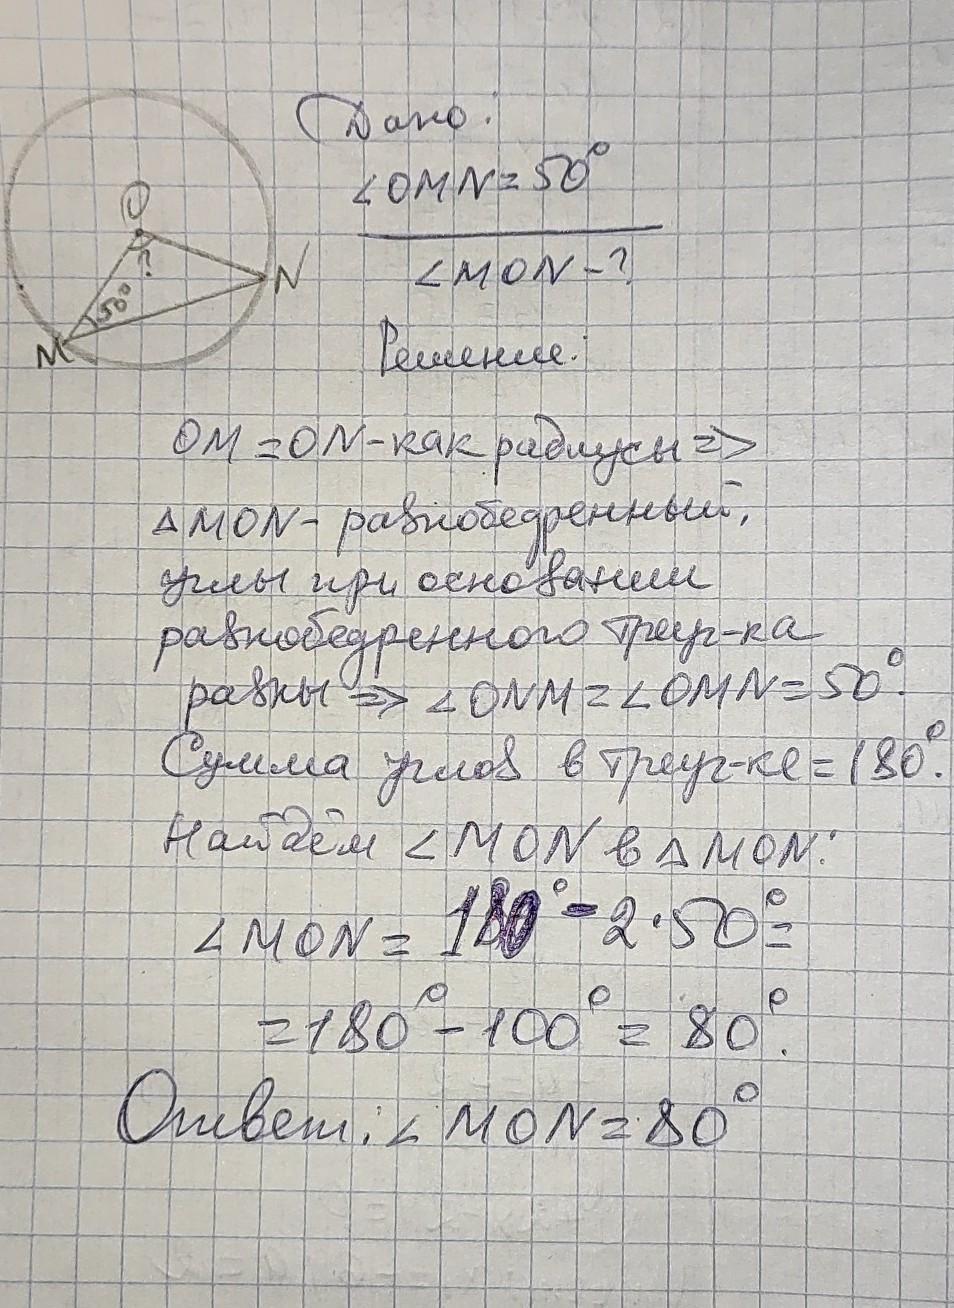 Дано:
∠OMN=50°
∠MON-?
O
?
50°
N
M
Решение:
OM=ON-как радиусы=>
△MON-равнобедренный,
углы при основании
равнобедренного треуг-ка
равны=>∠ONM=∠OMN=50°.
Сумма углов в треуг-ке=180°.
Найдём ∠MON в △MON:
∠MON=180°-2·50°=
=180°-100°=80°.
Ответ:∠MON=80°